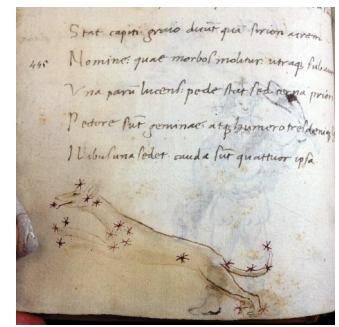 Stat capiti graio dicūt quā sirion aurem
445
Nomine: quae morbos molitur: utraq; sub aure
Vna parū lucens: pede stat sed: cerna prior
Pectore sūt geminae: atq; humero tres
Ilibus una sedet: cauda sūt quattuor ipsa